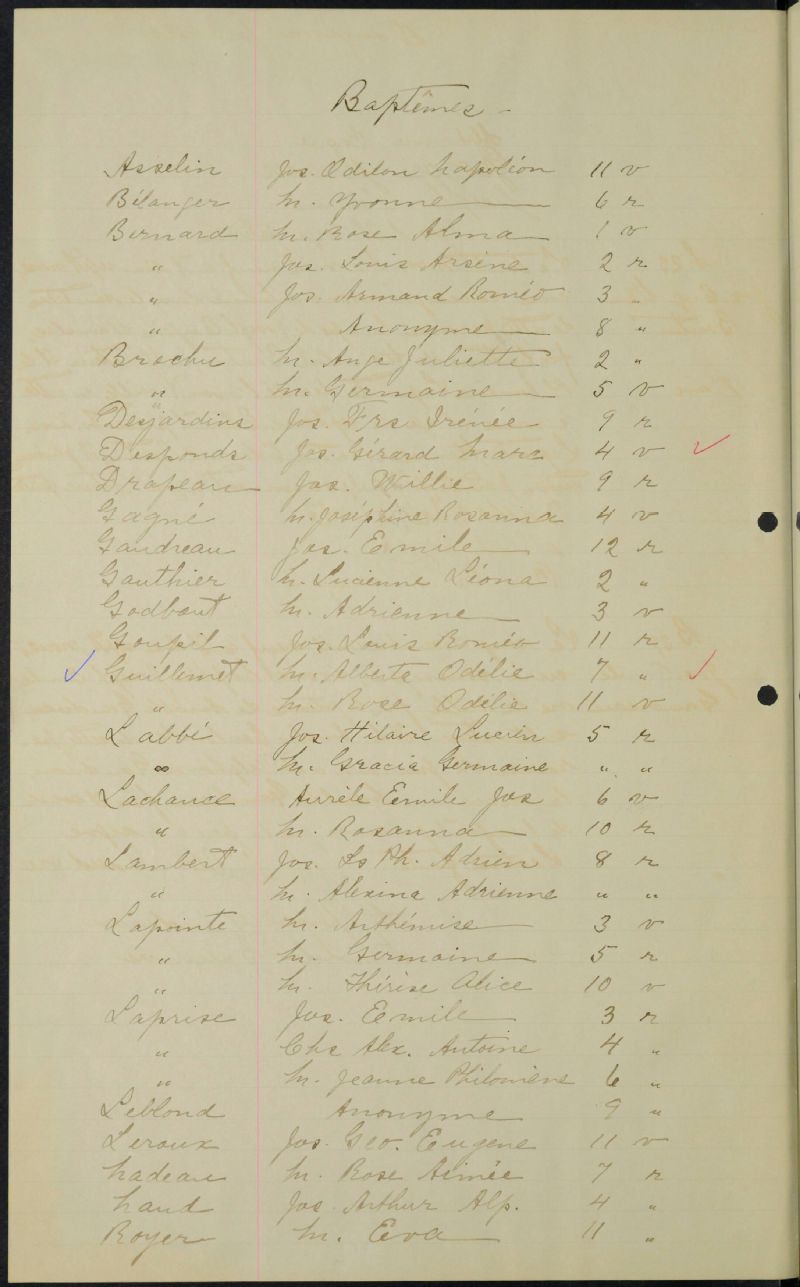 Baptêmes -
Asselin Jos. Odilon Napoléon 11 v
Bélanger M. Yvonne 6 r
Bernard M. Rose Alma 1 v
" Jos. Louis Arsène 2 r
" Jos. Armand Roméo 3 "
" Anonyme 8 "
Brochu M. Ange Juliette 2 "
" M. Germaine 5 v
Desjardins Jos. Frs Irénée 9 r
Desponds Jos. Gérard Marc 4 v
Drapeau Jos. Willie 9 r
Gagné M. Joséphine Rosanna 4 v
Gaudreau Jos. Emile 12 r
Gauthier M. Lucienne Léona 2 "
Godbout M. Adrienne 3 v
Goupil Jos. Louis Roméo 11 r
Guillemet M. Alberta Odélie 7 "
" M. Rose Odélie 11 v
Labbé Jos. Hilaire Lucien 5 r
" M. Gracia Germaine " "
Lachance Aurèle Emile Jos 6 v
" M. Rosanna 10 r
Lambert Jos. Ls Ph. Adrien 8 r
" M. Alexina Adrienne " "
Lapointe M. Arthémise 3 v
" M. Germaine 5 r
" M. Thérèse Alice 10 v
Laprise Jos. Emile 3 r
" Chs Alex. Antoine 4 "
" M. Jeanne Philomène 6 "
Leblond Anonyme 9 "
Leroux Jos. Geo. Eugene 11 v
Nadeau M. Rose Aimée 7 r
Naud Jos. Arthur Alp. 4 "
Royer M. Eva 11 "